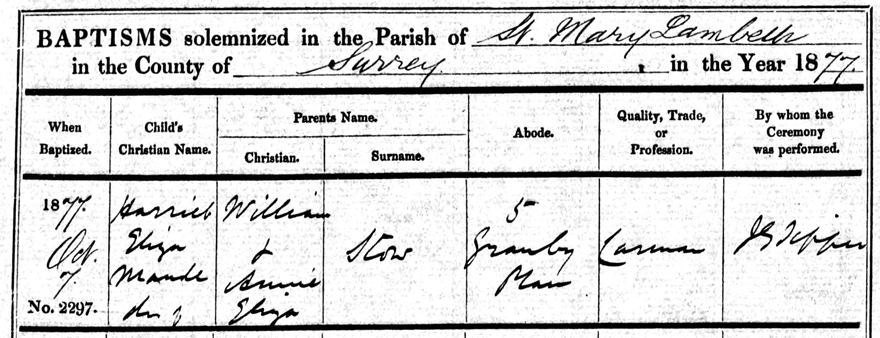 BAPTISMS solemnized in the Parish of St. Mary Lambeth
in the County of Surrey, in the Year 1877.
When Baptized.
Child's Christian Name.
Parents Name.
Christian.
Surname.
Abode.
Quality, Trade, or Profession.
By whom the Ceremony was performed.
1877. Harriet William 5
Oct. Eliza & Stow Granby Carman
7 Maude Annie Place
No. 2297. Eliza